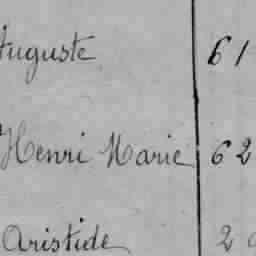 Auguste 61
Henri Marie 62
Aristide 2